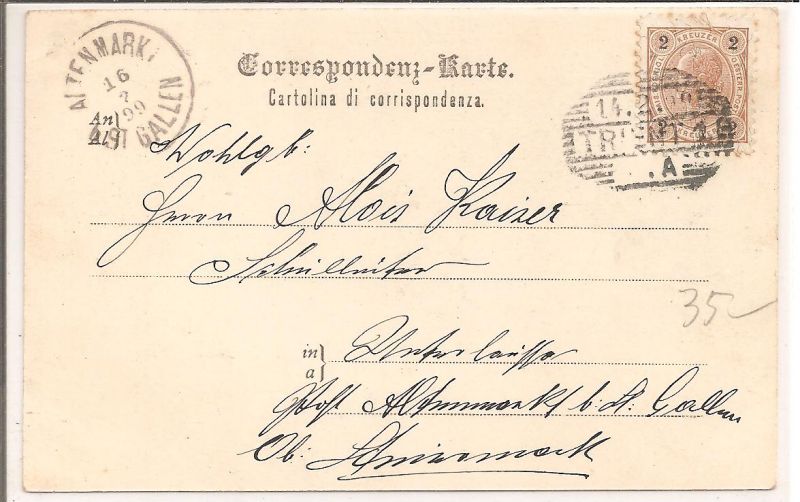 ALTENMARKT
16
7
99
B/ST GALLEN
2 KREUZER 2
2 2
KREUZER
14. 99
TRIENT 1
.A
Correspondenz-Karte.
Cartolina di corrispondenza.
An
Al
Wohlgb:
Herrn Alois Kaiser
Schulleiter
in
a
Unterlaussa
Post Altenmarkt b. St. Gallen
Ob. Steiermark
35